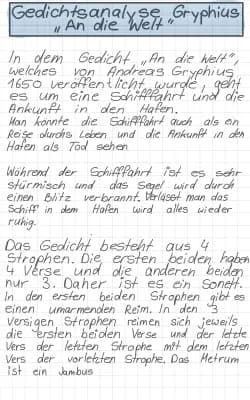 Gedichtsanalyse Gryphius
„An die Welt"
In dem Gedicht „An die Welt",
welches von Andreas Gryphius
1650 veröffentlicht wurde, geht
es um eine Schifffahrt und die
Ankunft in den Hafen.
Man könnte die Schifffahrt auch als ein
Reise durchs Leben und die Ankunft in den
Hafen als Tod sehen
Während der Schifffahrt ist es sehr
stürmisch und das Segel wird durch
einen Blitz verbrannt. Verlässt man das
Schiff in dem Hafen wird alles wieder
ruhig.
Das Gedicht besteht aus 4
Strophen. Die ersten beiden haben
4 Verse und die anderen beiden
nur 3. Daher ist es ein Sonett.
In den ersten beiden Strophen gibt es
einen umarmenden Reim. In den 3
versigen Strophen reimen sich jeweils
die ersten beiden Verse und der letzte
Vers der letzten Strophe mit dem letzten
Vers der vorletzten Strophe. Das Metrum
ist ein Jambus